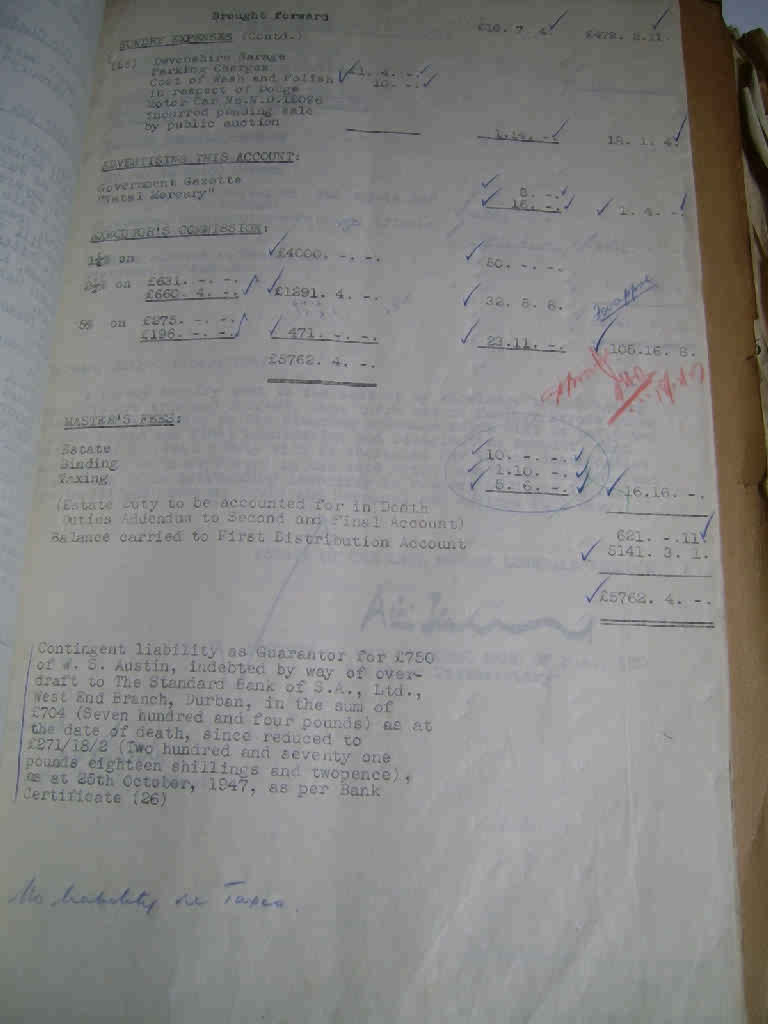 Brought forward
£16. 7. 4. £479. 2.11.
SUNDRY EXPENSES (Contd.)
(25) Devonshire Garage
Parking Charges £1. 4. -.
Cost of Wash and Polish 10. -.
in respect of Dodge
Motor Car No.N.D.12096
incurred pending sale
by public auction 1.14. -. 18. 1. 4.
ADVERTISING THIS ACCOUNT:
Government Gazette 8. -.
"Natal Mercury" 16. -. 1. 4. -.
EXECUTOR'S COMMISSION:
1¼% on £4000. -. -. 50. -. -.
2½% on £631. -. -.
£660. 4. -. £1291. 4. -. 32. 5. 8.
5% on £275. -. -.
£196. -. -. 471. -. -. 23.11. -. 105.16. 8.
£5762. 4. -.
MASTER'S FEES:
Estate 10. -. -.
Binding 1.10. -.
Taxing 5. 6. -. 16.16. -.
(Estate Duty to be accounted for in Death
Duties Addendum to Second and Final Account)
621. -.11
Balance carried to First Distribution Account 5141. 3. 1.
£5762. 4. -.
Contingent liability as Guarantor for £750
of W. S. Austin, indebted by way of over-
draft to The Standard Bank of S.A., Ltd.,
West End Branch, Durban, in the sum of
£704 (Seven hundred and four pounds) as at
the date of death, since reduced to
£271/18/2 (Two hundred and seventy one
pounds eighteen shillings and twopence),
as at 25th October, 1947, as per Bank
Certificate (26)
No liability re Taxes.